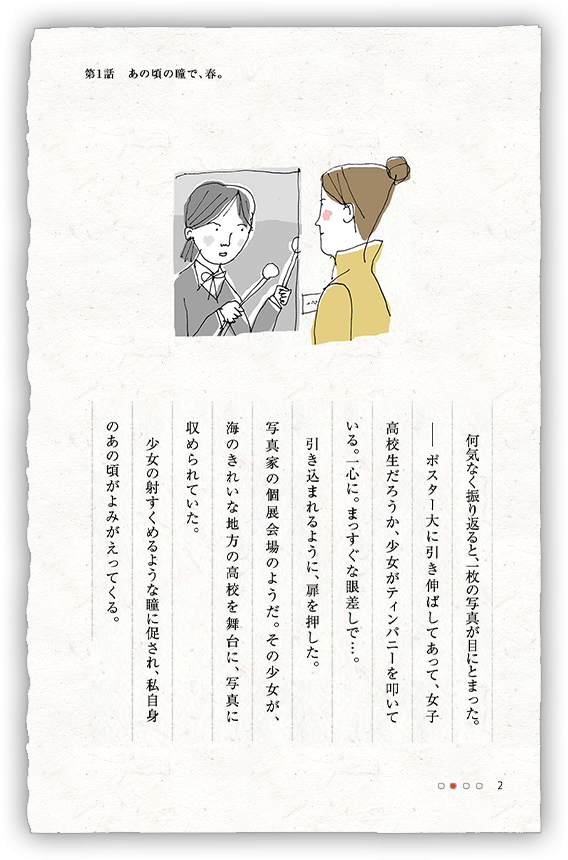 第1話　あの頃の瞳で、春。
何気なく振り返ると、一枚の写真が目にとまった。
── ポスター大に引き伸ばしてあって、女子
高校生だろうか、少女がティンパニーを叩いて
いる。一心に。まっすぐな眼差しで…。
引き込まれるように、扉を押した。
写真家の個展会場のようだ。その少女が、
海のきれいな地方の高校を舞台に、写真に
収められていた。
少女の射すくめるような瞳に促され、私自身
のあの頃がよみがえってくる。
2